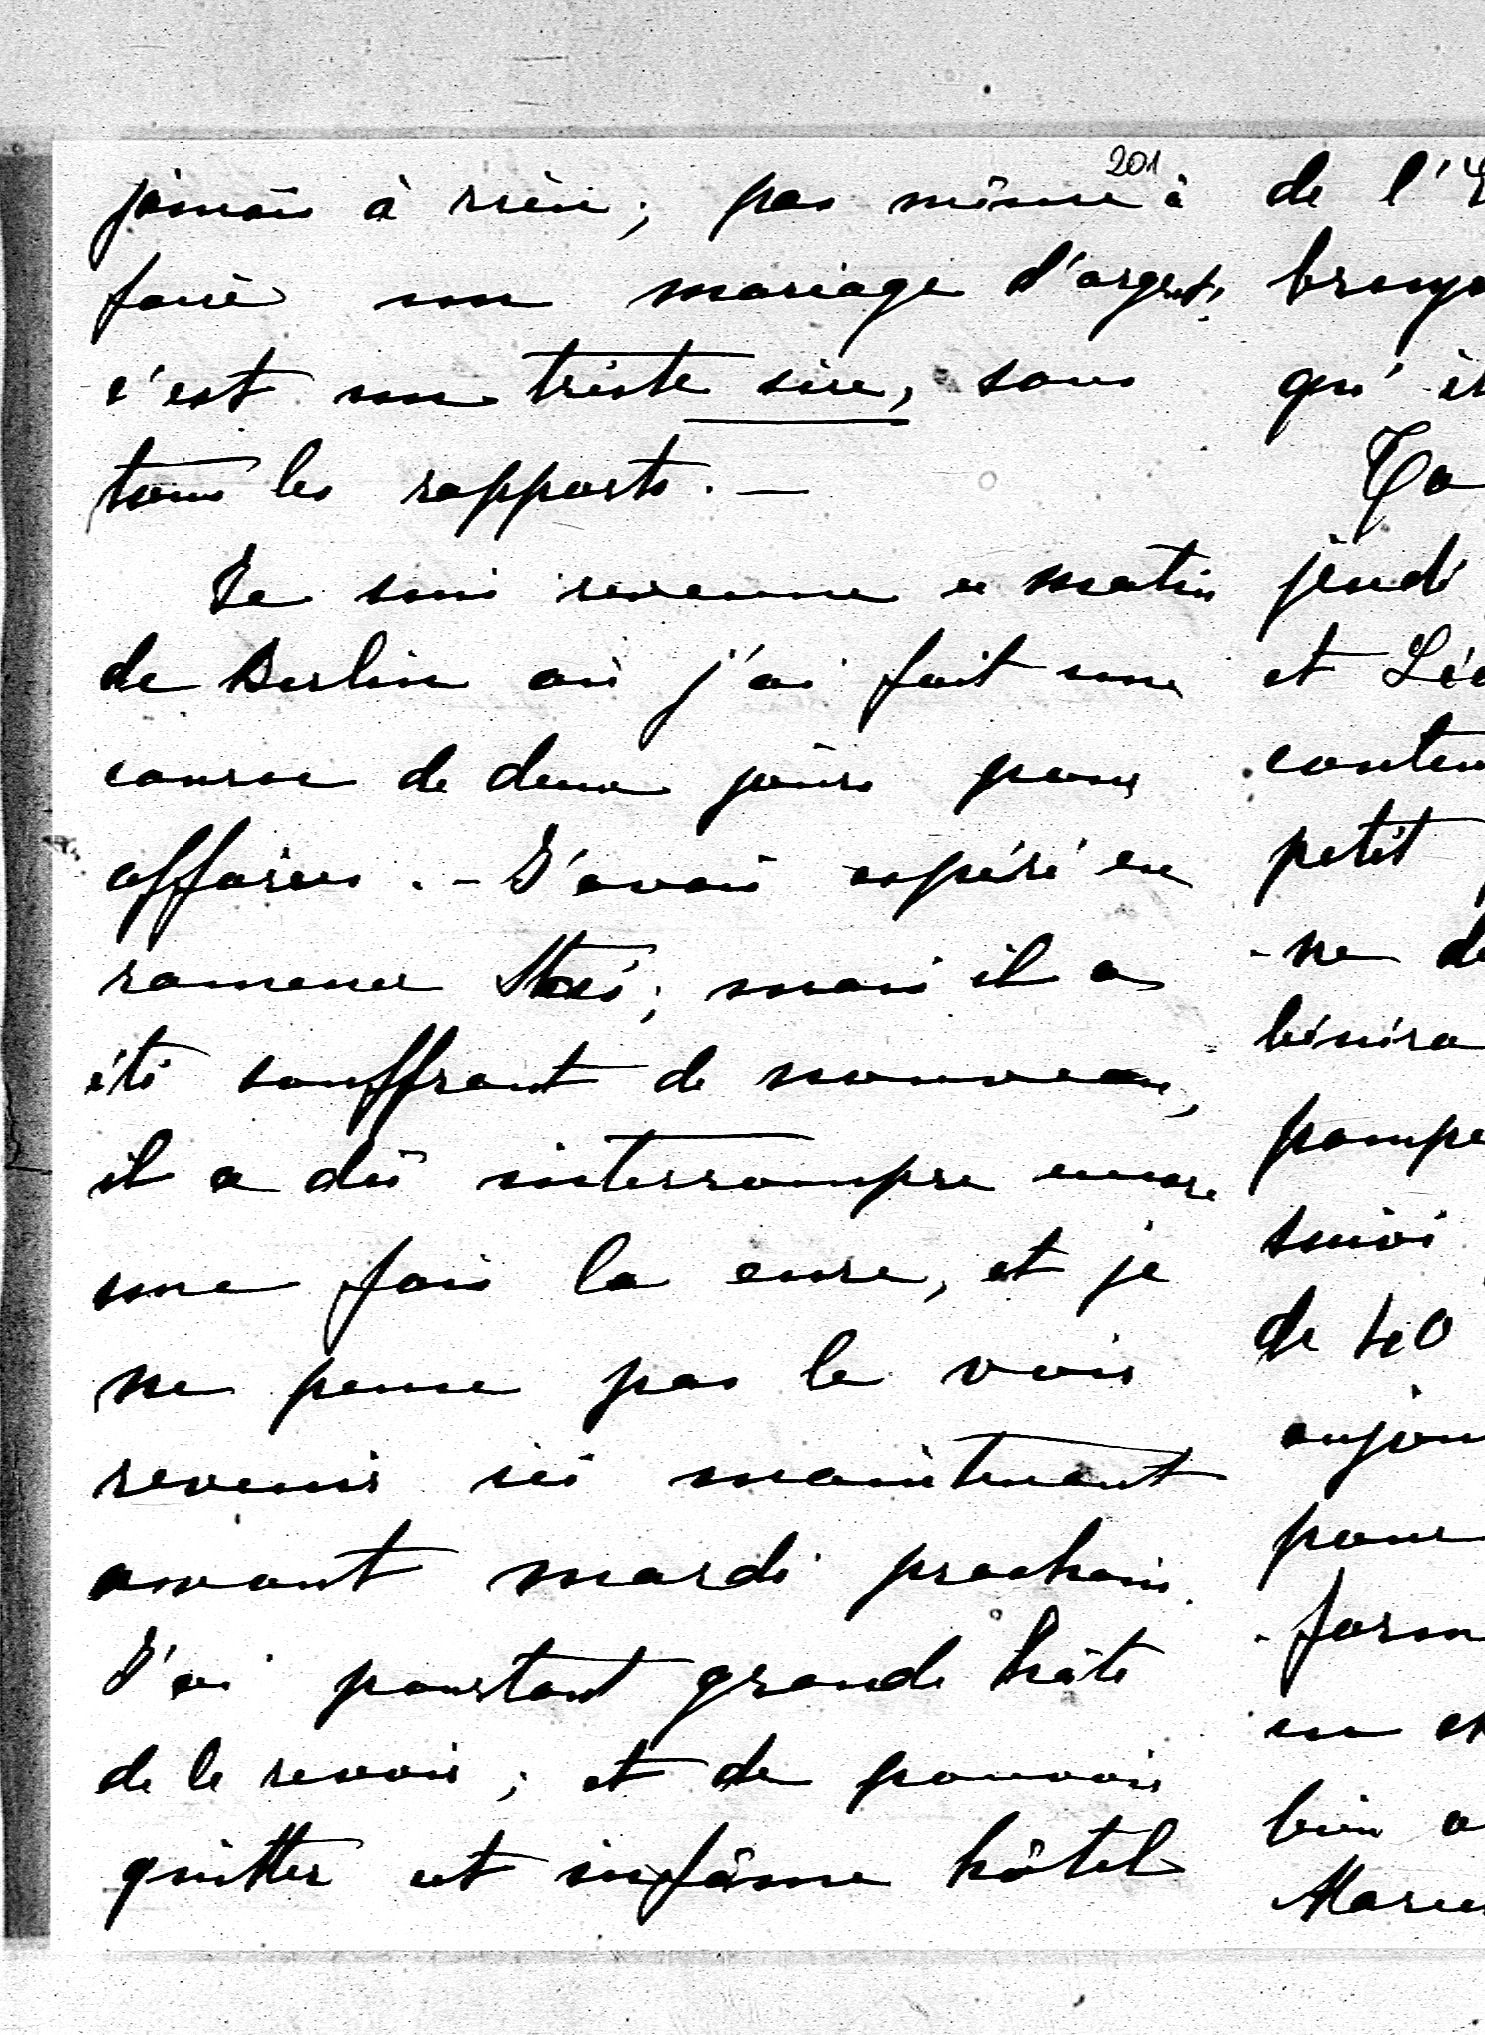 201
jamais à rien; pas même à
faire un mariage d'argent;
c'est un triste sire, sous
tous les rapports. —
Je suis revenue ce matin
de Berlin où j'ai fait une
course de deux jours pour
affaires. - J'avais espéré en
ramener; mais il a
été souffrant de nouveau,
il a dû interrompre encore
une fois la cure, et je
ne pense pas le voir
revenir ici maintenant
avant mardi prochain.
J'ai pourtant grande hâte
de le revoir; et de pouvoir
quitter cet infâme hôtel
de l'
qu'il
jeudi
et
petit
bénira
suivi
de 40
pour
bien